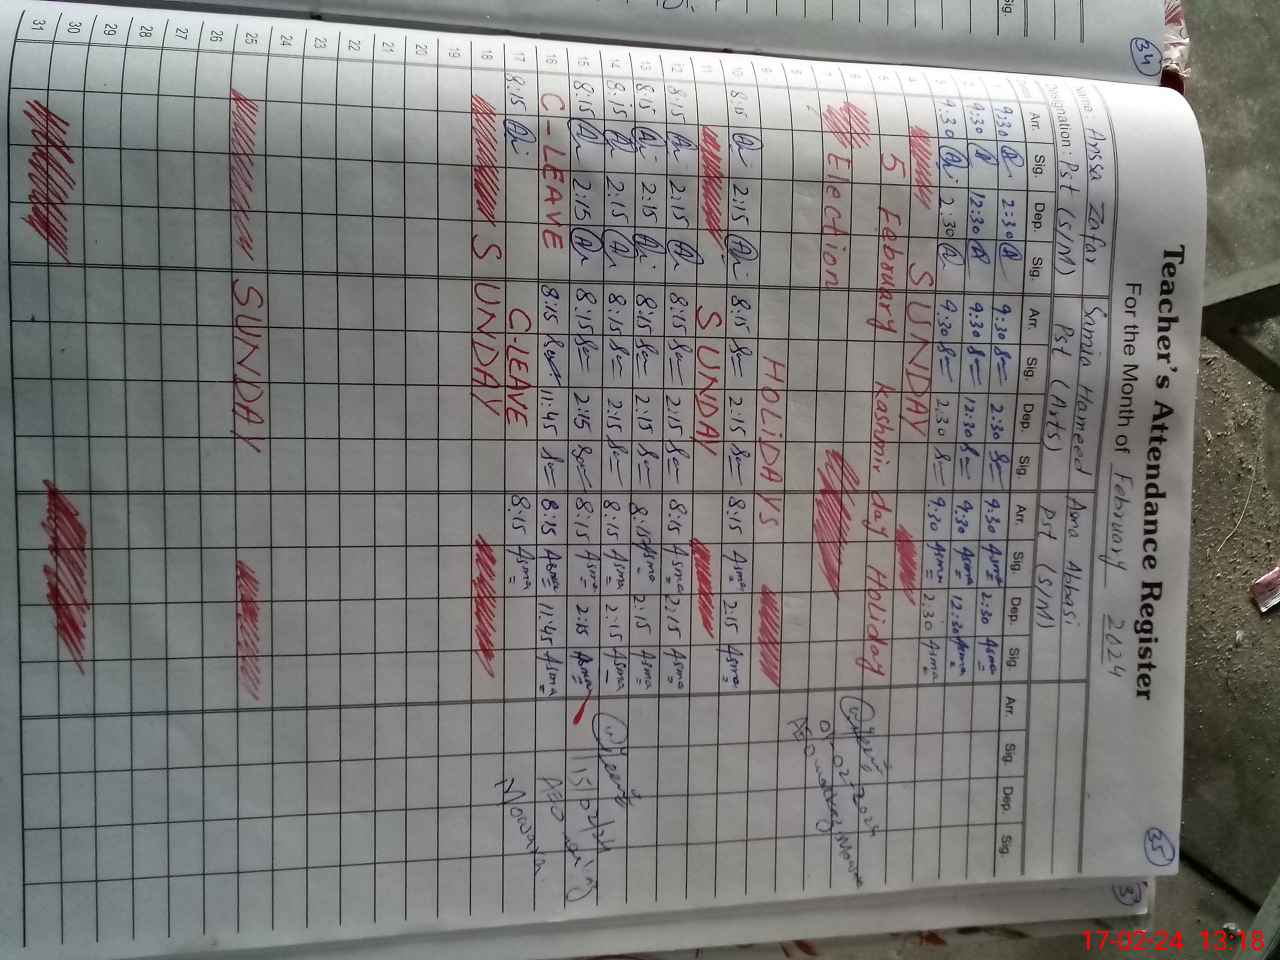 34
35
Teacher's Attendance Register
For the Month of February 2024
Name: Anssa Zafar Samia Hameed Asma Abbasi
Designation: Pst (S/M) Pst (Arts) Pst (S/M)
Arr. Sig. Dep. Sig. Arr. Sig. Dep. Sig. Arr. Sig. Dep. Sig. Arr. Sig. Dep. Sig.
1 9:30 2:30 9:30 2:30 9:30 Asma 2:30 Asma
2 9:30 12:30 9:30 12:30 9:30 Asma 12:30 Asma
3 9:30 2:30 9:30 2:30 9:30 Asma 2:30 Asma
4 SUNDAY
5 5 February Kashmir day Holiday
6 Election
7
8
9 HOLiDAYS
10 8:15 2:15 8:15 2:15 8:15 Asma 2:15 Asma
11 SUNDAY
12 8:15 2:15 8:15 2:15 8:15 Asma 2:15 Asma
13 8:15 2:15 8:15 2:15 8:15 Asma 2:15 Asma
14 8:15 2:15 8:15 2:15 8:15 Asma 2:15 Asma
15 8:15 2:15 8:15 2:15 8:15 Asma 2:15 Asma
16 C-LEAVE 8:15 11:45 8:15 Asma 11:45 Asma
17 8:15 C-LEAVE 8:15 Asma
18 SUNDAY
19
20
21
22
23
24
25 SUNDAY
26
27
28
29
30
31
15/02/24
17-02-24 13:18